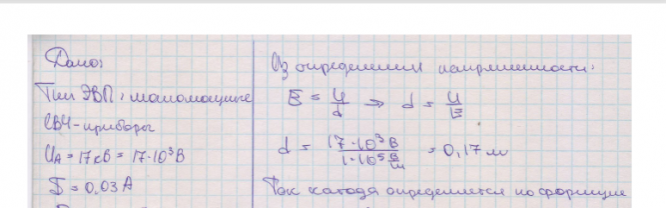 Дано:
Тип ЭВП: маломощные
СВЧ-приборы
U_A = 17 кВ = 17·10³ В
I = 0,03 А
Из определения напряженности:
E = U/d => d = U/E
d = 17·10³ В / 1·10⁵ В/м = 0,17 м
Ток катода определяется по формуле